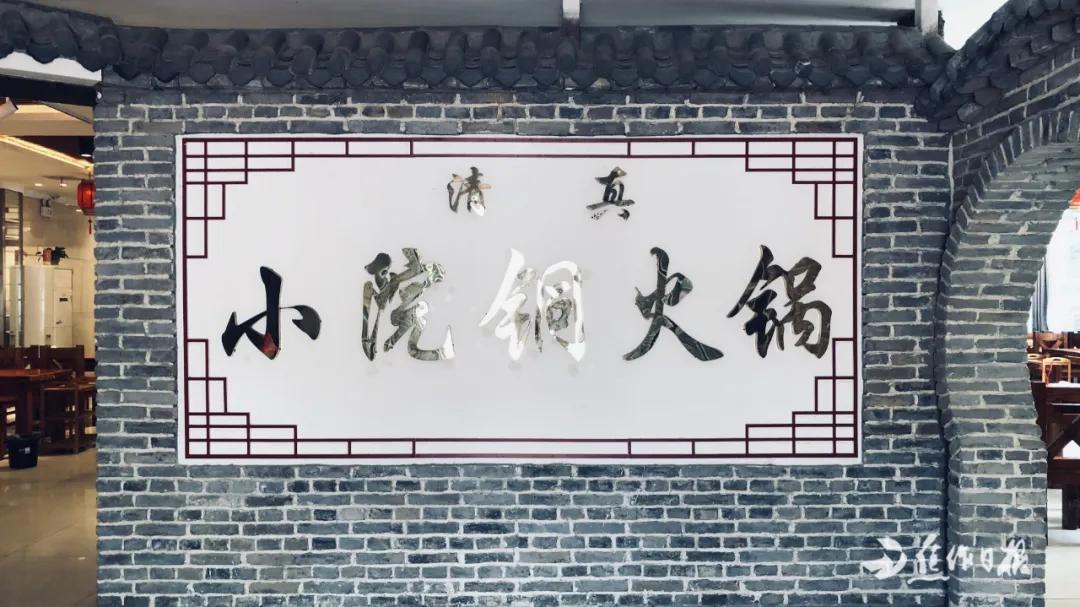 清真
小院铜火锅
焦作日报